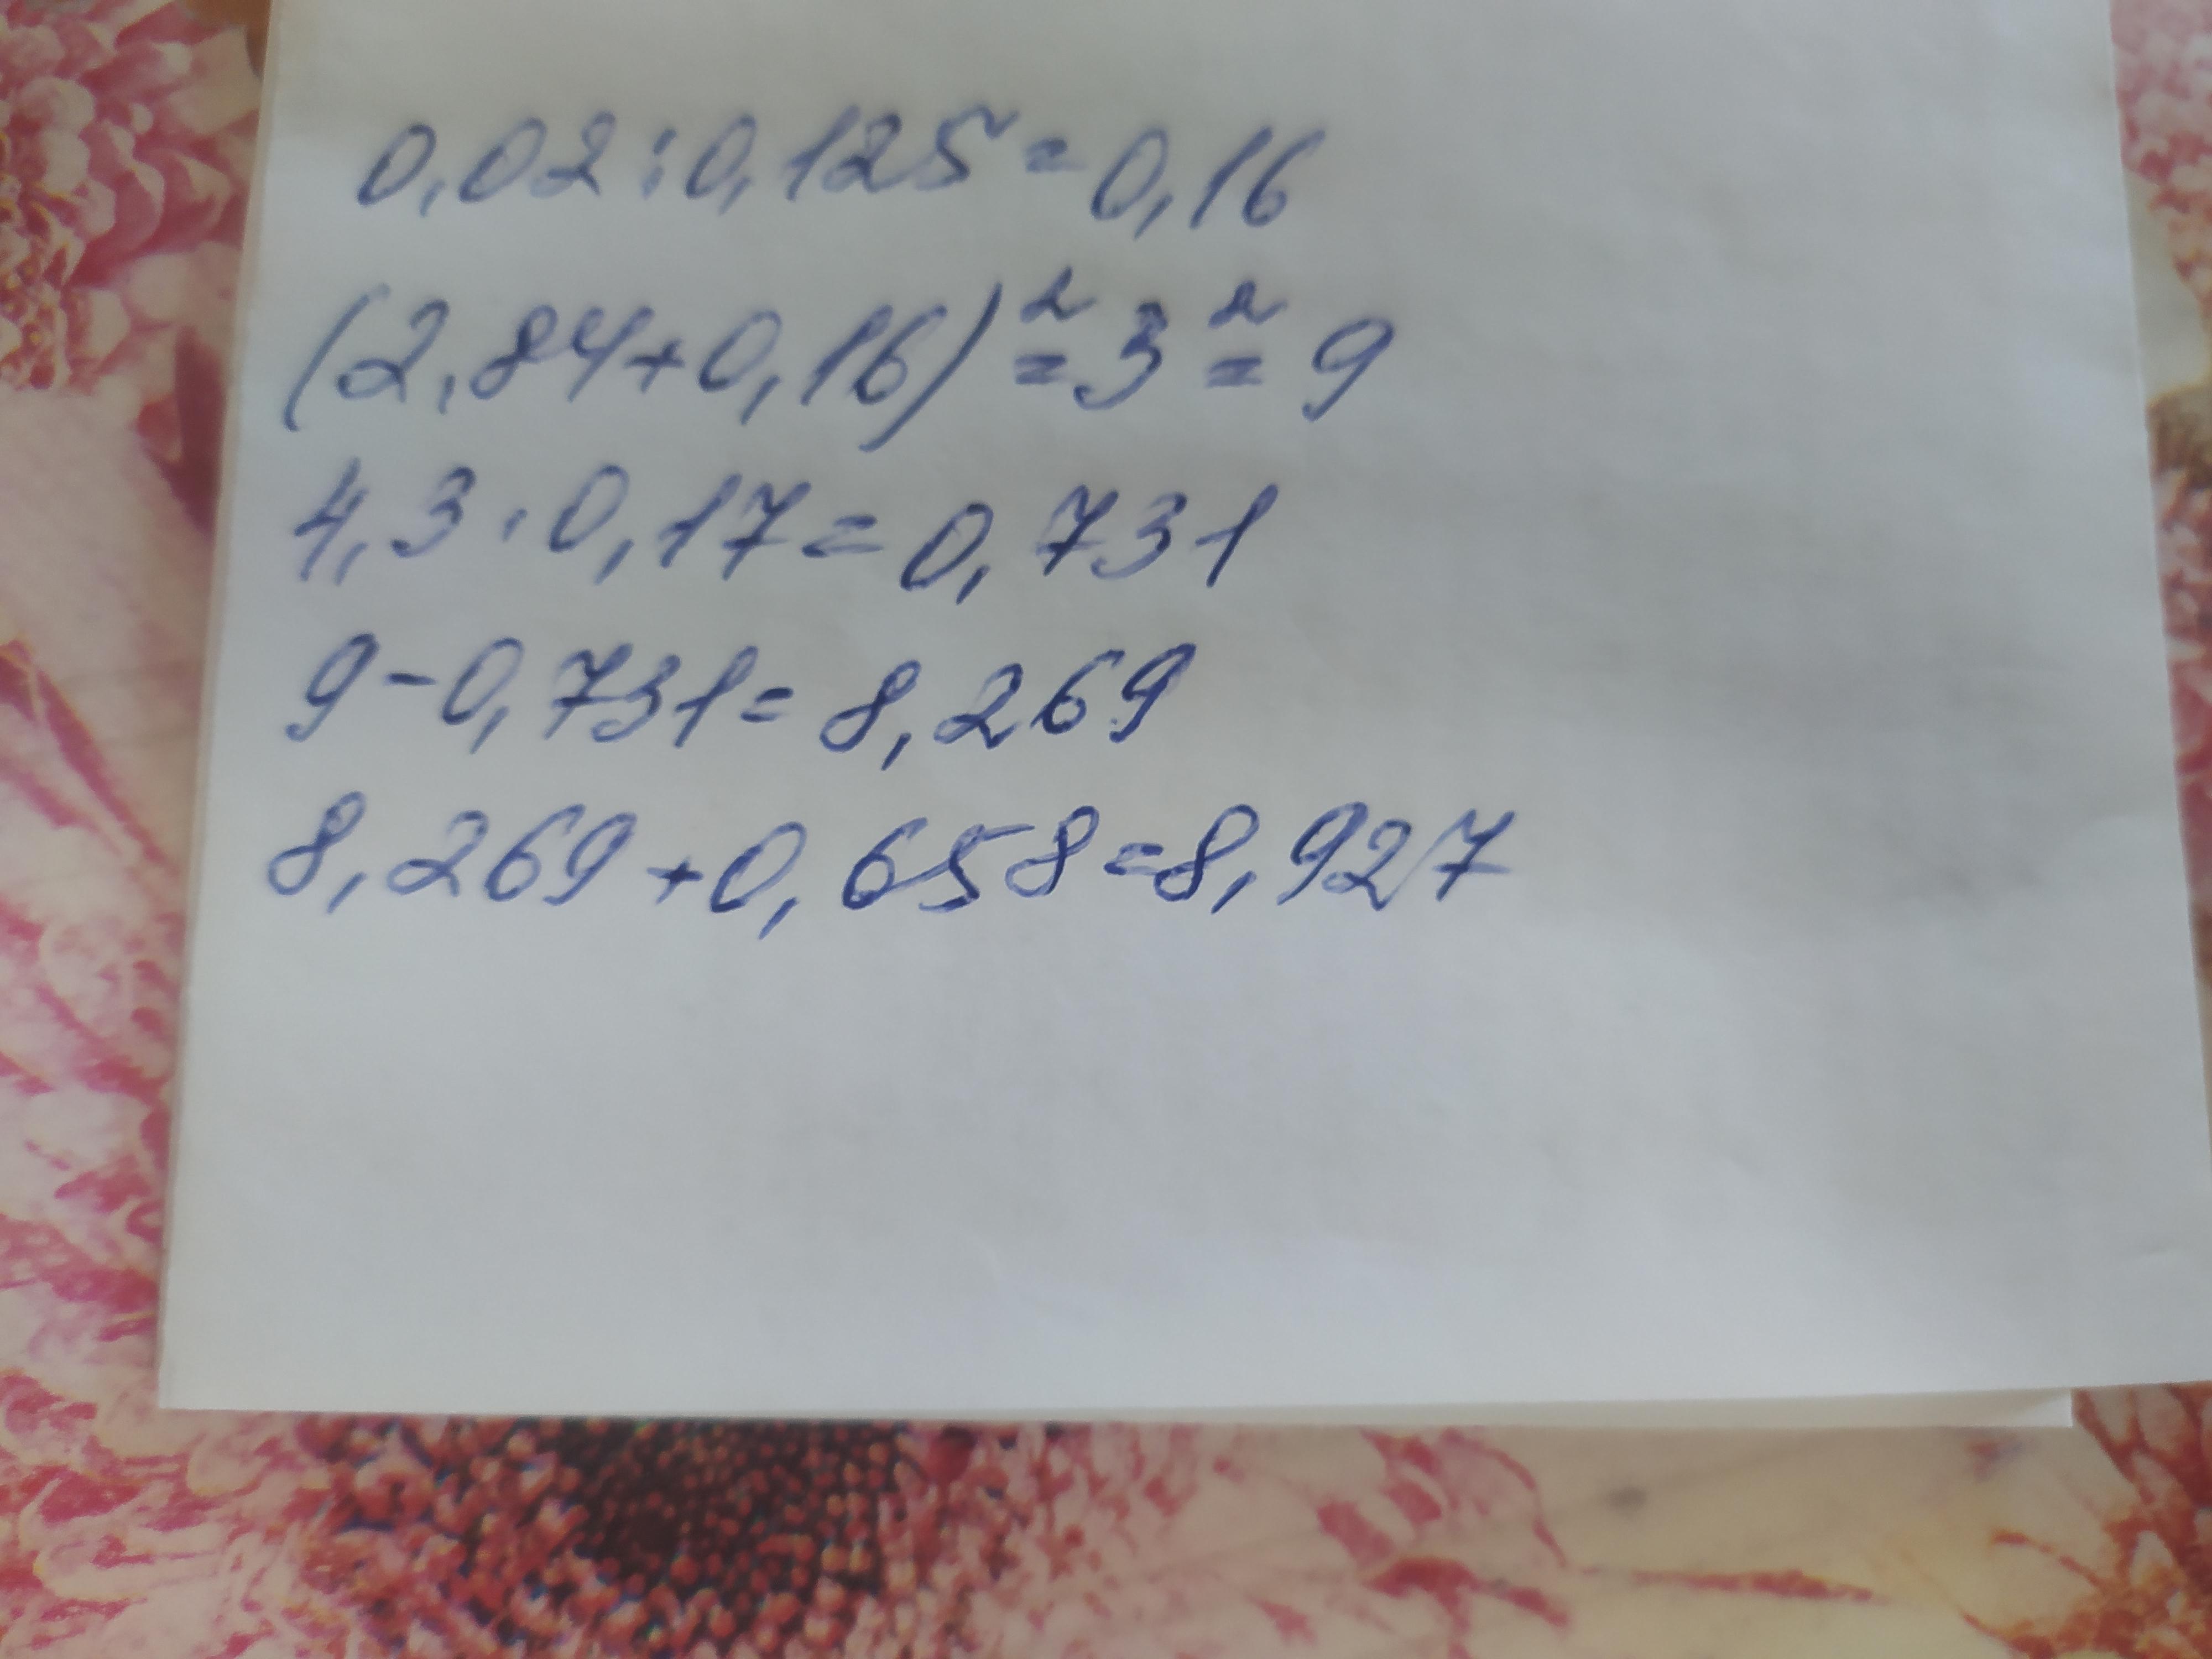 0,02:0,125=0,16
(2,84+0,16)²=3²=9
4,3·0,17=0,731
9-0,731=8,269
8,269+0,658=8,927